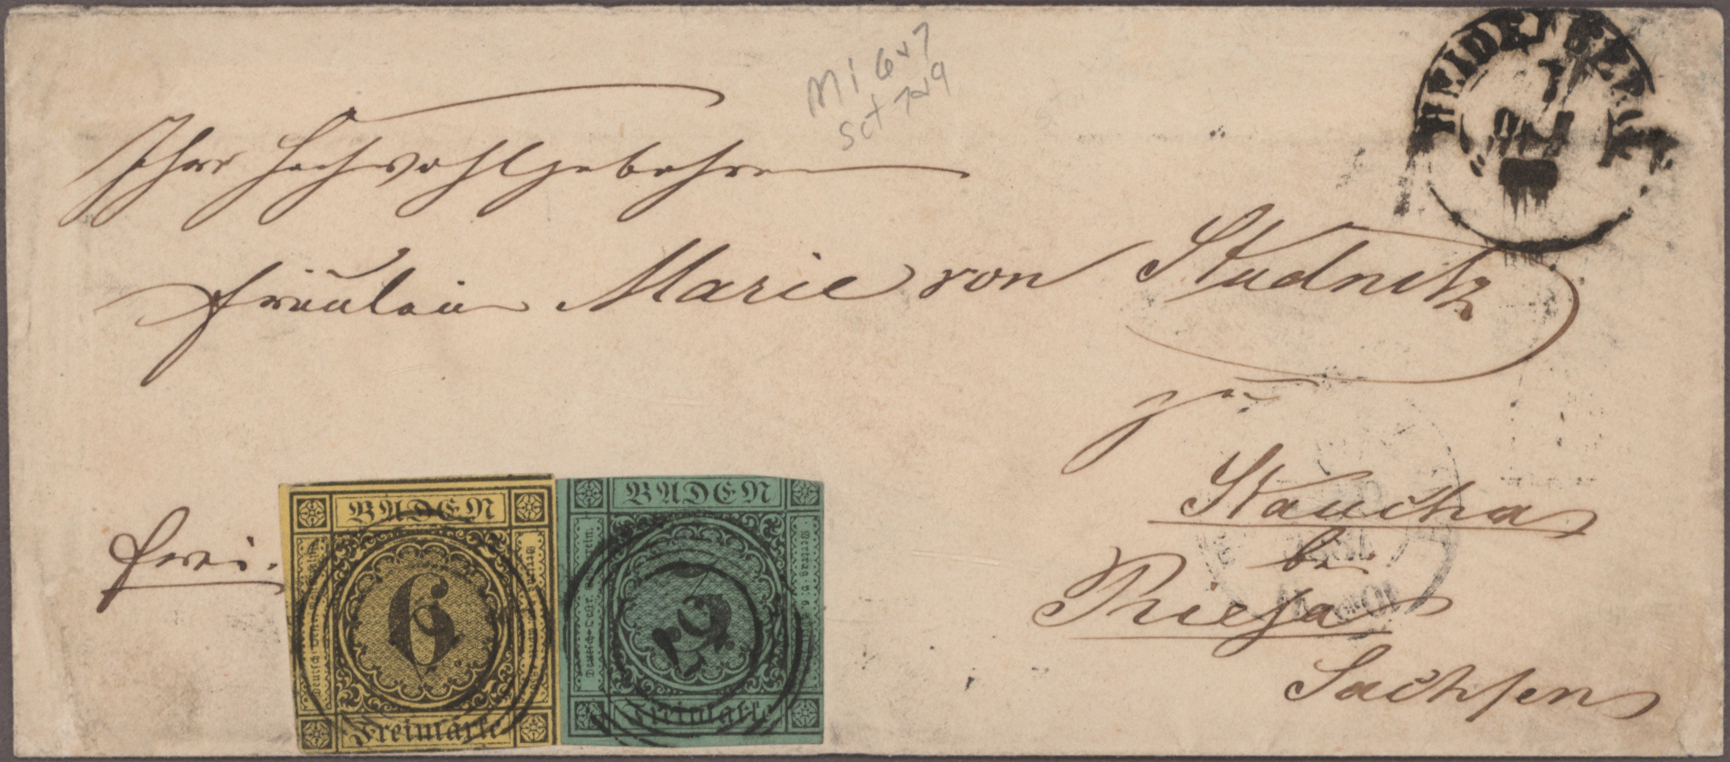 M i 6 v 7
Sct 7 v 9
HEIDELBERG
7
Ihro Hochwohlgebohren
Fräulein Marie von Studnitz
zu
Staucha
b.
Riesa
Sachsen
frei.
BADEN
6
Freimarke
BADEN
Freimarke
57